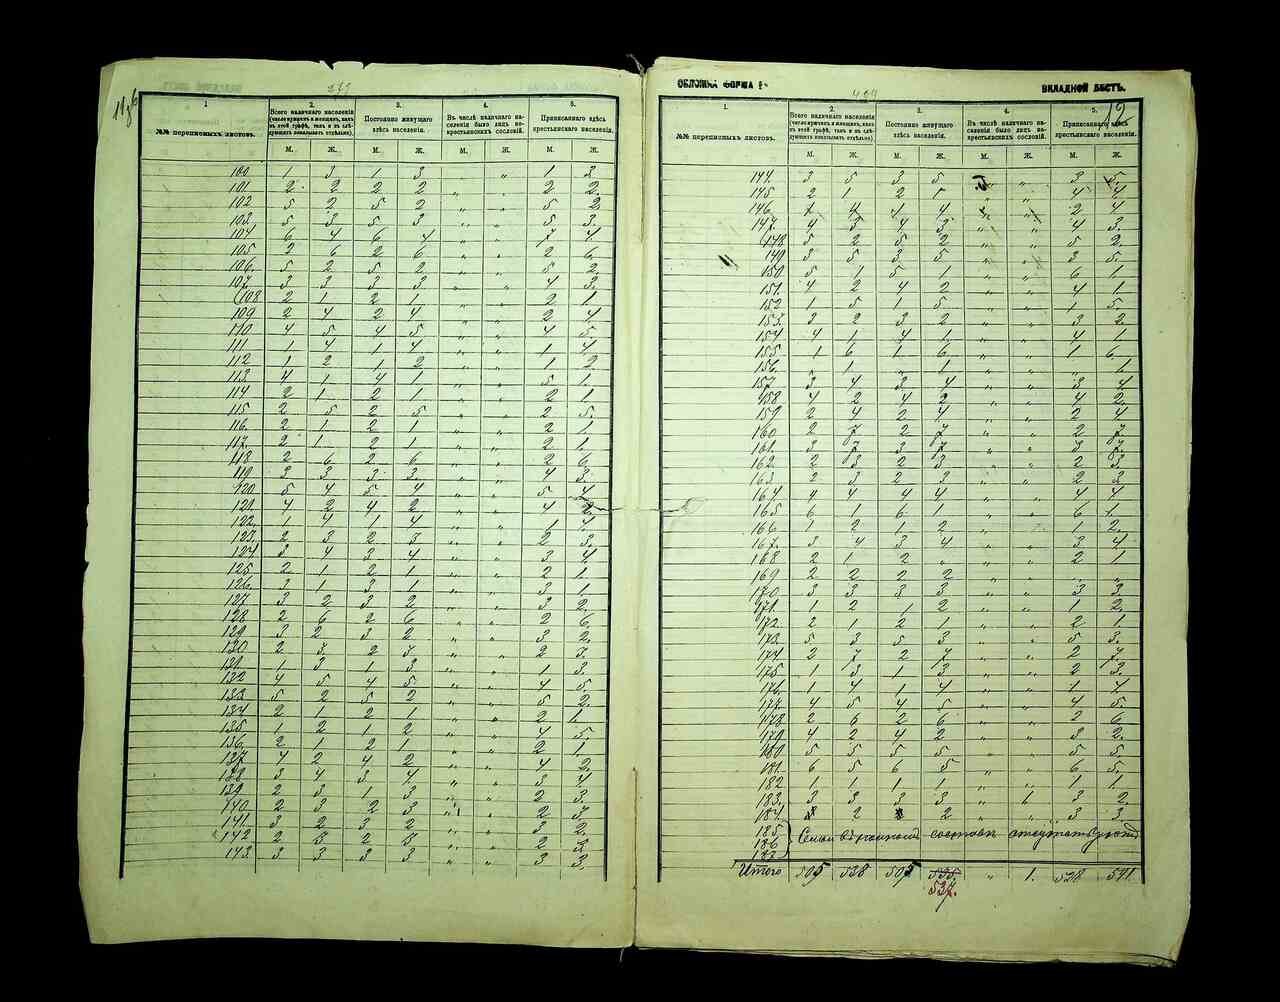 1.
№№ переписныхъ листовъ.
2.
Всего наличнаго населенія
3.
Постоянно живущаго здѣсь населенія.
4.
Въ числѣ наличнаго населенія было лицъ некрестьянскихъ сословій.
5.
Приписаннаго здѣсь крестьянскаго населенія.
М. Ж. М. Ж. М. Ж. М. Ж.
100 1 3 1 3 " 1 3
101 2 2 2 2 " " 2 2
102 5 2 5 2 " " 5 2
103 5 3 5 3 " " 5 3
104 6 4 6 4 " " 7 4
105 2 6 2 6 " " 2 6
106 5 2 5 2 " " 5 2
107 3 3 3 3 " " 4 3
108 2 1 2 1 " " 2 1
109 2 4 2 4 " " 2 4
110 4 5 4 5 " " 4 5
111 1 4 1 4 " " 1 4
112 1 2 1 2 " " 1 2
113 4 1 4 1 " " 5 1
114 2 1 2 1 " " 2 1
115 2 5 2 5 " " 2 5
116 2 1 2 1 " " 2 1
117 2 1 2 1 " " 2 1
118 2 6 2 6 " " 2 6
119 3 3 3 3 " " 4 3
120 5 4 5 4 " " 5 4
121 4 2 4 2 " " 4 2
122 1 4 1 4 " " 1 4
123 2 3 2 3 " " 2 3
124 3 4 3 4 " " 3 4
125 2 1 2 1 " " 2 1
126 3 1 3 1 " " 3 1
127 3 2 3 2 " " 3 2
128 2 6 2 6 " " 2 6
129 3 2 3 2 " " 3 2
130 2 3 2 3 " " 2 3
131 1 3 1 3 " " 1 3
132 4 5 4 5 " " 4 5
133 5 2 5 2 " " 5 2
134 2 1 2 1 " " 2 1
135 1 2 1 2 " " 4 5
136 2 1 2 1 " " 2 1
137 4 2 4 2 " " 4 2
138 3 4 3 4 " " 3 4
139 2 3 1 3 " " 2 3
140 2 3 2 3 " 2 3
141 3 2 3 2 " " 3 2
142 2 3 2 3 " " 2 3
143 3 3 3 3 " " 3 3
ОБЛОЖКА ФОРМА
ВКЛАДНОЙ ЛИСТЪ.
12
1.
№№ переписныхъ листовъ.
2.
Всего наличнаго населенія
3.
Постоянно живущаго здѣсь населенія.
4.
Въ числѣ наличнаго населенія было лицъ некрестьянскихъ сословій.
5.
Приписаннаго здѣсь крестьянскаго населенія.
М. Ж. М. Ж. М. Ж. М. Ж.
144 3 5 3 5 " 3 5
145 2 1 2 1 " " 4 4
146 4 1 4 2 4
147 4 3 4 3 " " 4 3
148 5 2 5 2 " " 5 2
149 3 5 3 5 " " 3 5
150 5 1 5 1 " " 6 1
151 4 2 4 2 " " 4 1
152 1 5 1 5 " " 1 5
153 3 2 3 2 " " 3 2
154 4 1 4 1 " " 4 1
155 1 6 1 6 " " 1 6
156 " 1 " 1 " " " 1
157 3 4 3 4 " " 3 4
158 4 2 4 2 " " 4 2
159 2 4 2 4 " " 2 4
160 2 7 2 7 " " 2 7
161 3 7 3 7 " " 3 7
162 2 3 2 3 " " 2 3
163 2 3 2 3 " " 2 3
164 4 4 4 4 " " 4 4
165 6 1 6 1 " " 6 1
166 1 2 1 2 " " 1 2
167 3 4 3 4 " " 3 4
168 2 1 2 " " " 2 1
169 2 2 2 2 " " " "
170 3 3 3 3 " " 3 3
171 1 2 1 2 " " 1 2
172 2 1 2 1 " " 2 1
173 5 3 5 3 " " 5 3
174 2 7 2 7 " " 2 7
175 1 3 1 3 " " 2 3
176 1 4 1 4 " " 1 4
177 4 5 4 5 " " 4 5
178 2 6 2 6 " " 2 6
179 4 2 4 2 " " 3 2
180 5 5 5 5 " " 5 5
181 6 5 6 5 " " 6 5
182 1 1 1 1 " " 1 1
183 3 3 3 3 " 3 2
184 2 2 " " 3 3
185
186
187
Семьи въ полномъ составѣ отсутствуютъ
Итого 505 538 505 535 " 1 528 541
537.